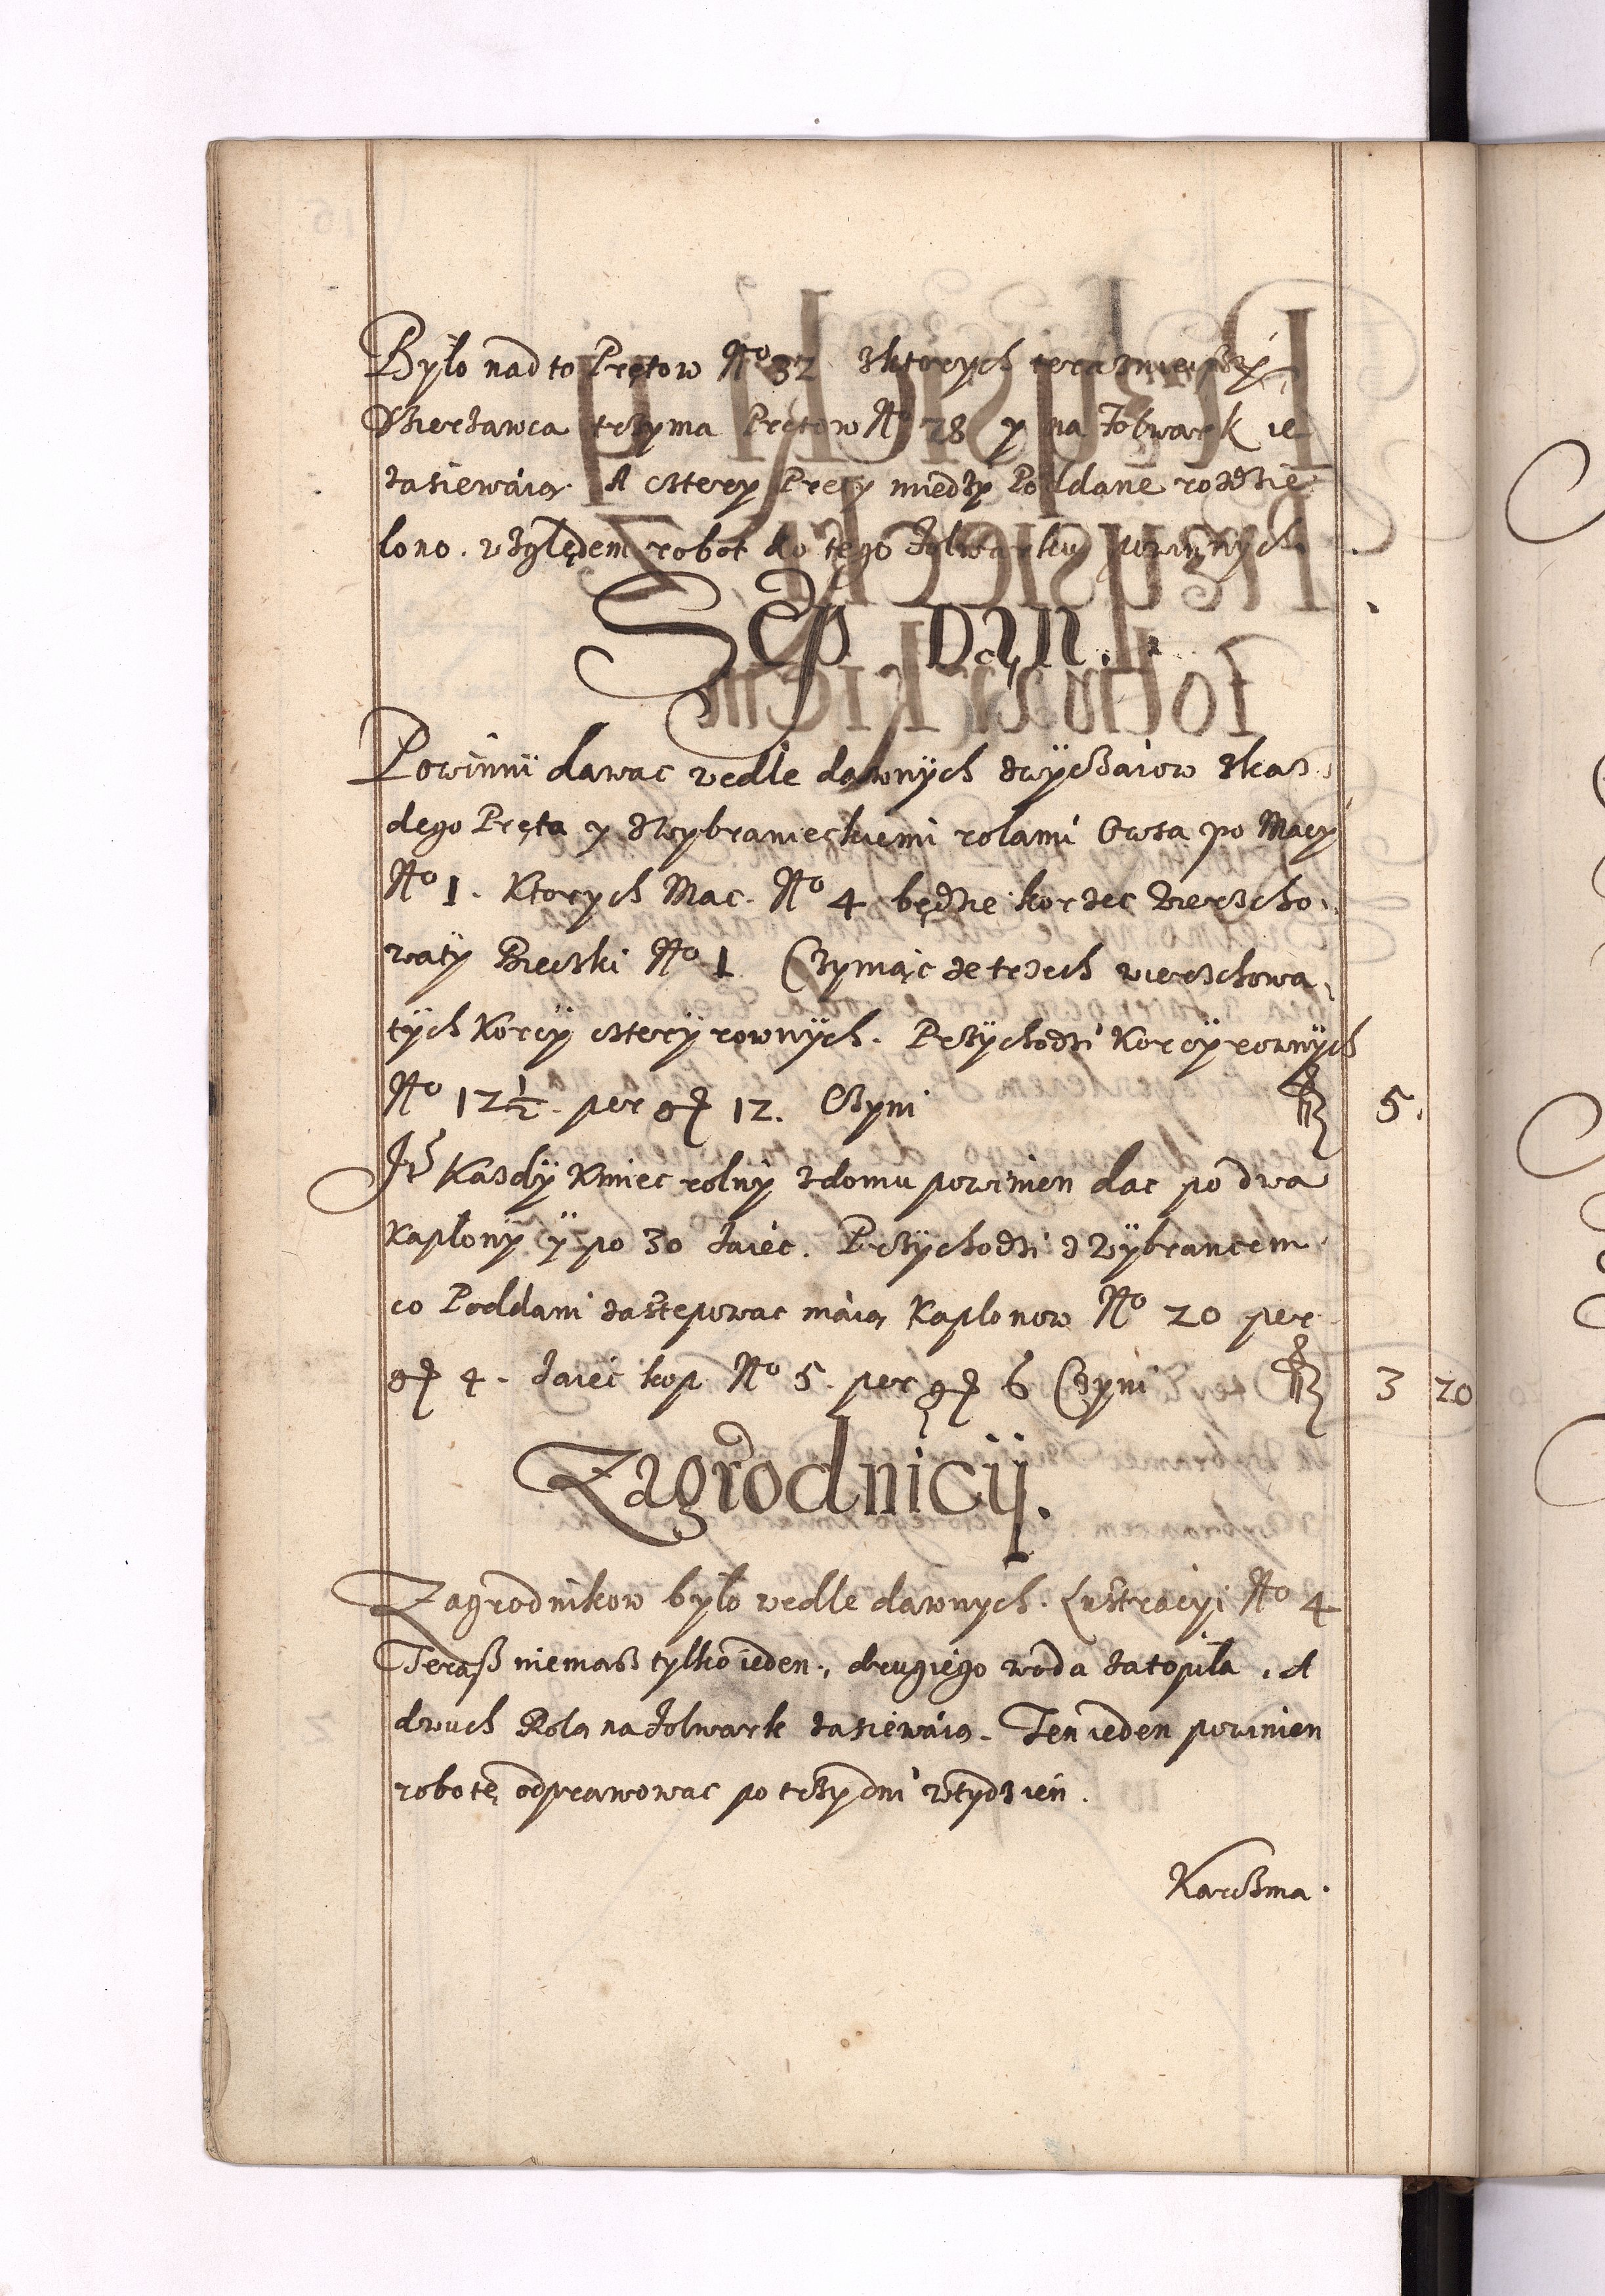 Było nad to Prętow No 32 zktorych teraznieyszy
Dzierzawca trzyma Prętow No 28 y na folwark ie
zasiewaią. A cztery Pręty miedzy Poddane rozdzie
lono. względem robot do tego folwarku powinnych.
Sep Dan.
Powinni dawac wedle dawnych zwyczaiow zkaz
dego Pręta y zwybranieckiemi rolami Owsa po Macy
No 1. Ktorych Mac. No 4 będzie korzec wierzcho,
waty Biecski No 1 Czyniąc ze trzech wierzchowa,
tych Korcy cztery rownych. Przychodzi Korcy rownych
No 12 ½ per gr 12. Czyni fl 5.
Iż Kazdy Kmiec rolny zdomu powinien dac po dwa
Kapłony y po 30 Iaiec. Przychodzi z Wybrancem
co Poddani zastępowac maią Kapłonow No 20 per
gr 4. Iaiec kop No 5. per gr 6 Czyni fl 3 20
Zagrodnicy.
Zagrodnikow było wedle dawnych Lustracyi No 4
Teraß niemasz tylko ieden, drugiego woda zatopiła, A
dwuch Rolą na folwark zasiewaią. Ten ieden powinien
robotę odprawowac po trzy dni wtydzień.
Karczma.